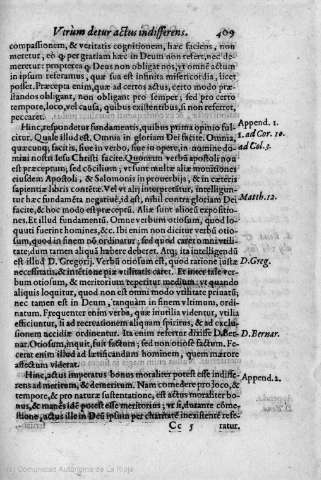 Vtrùm detur actus indifferens. 409
compassionem, & veritatis cognitionem, hæc faciens, non
meretur, eò q per gratiam hæc in Deum non refert, nec de-
meretur: propterea q Deus non obligat nos, vt omnē actum
in ipsum referamus, quæ sua est infinita misericordia, licet
posset. Præcepta enim, quæ ad certos actus, certo modo præ-
standos obligant, non obligant pro semper, sed pro certo
tempore, loco, vel causa, quibus existentibus, si non referret,
peccaret.
Hinc, respondetur fundamentis, quibus prima opinio ful-
citur. Quale illud est. Omnia in gloriam Dei facite. Omnia,
quæcunq; facitis, siue in verbo, siue in opere, in nomine do-
mini nostri Iesu Christi facite. Quorum verbā apostoli non
est præceptum, sed cōcilium; vt sunt multæ aliæ monitiones
eiusdem Apostoli, & Salomonis in prouerbijs, & in cæteris
sapientiæ libris contētæ. Vel vt alij interpretātur, intelligun-
tur hæc fundamēta negatiuè, id est, nihil contra gloriam Dei
facite, & hoc modo est præceptū. Aliæ sunt aliorū expositio-
nes. Et illud fundamentū. Omne verbum otiosum, quod lo-
quuti fuerint homines, &c. Ibi enim non dicitur verbū otio-
sum, quod in finem nō ordinatur; sed quod caret omni vtili-
tate, dum tamen aliquā habere deberet. Atq; ita intelligendū
est illud D. Gregorij. Verbū otiosum est, quod ratione iustæ
necessitatis, & intētione piæ vtilitatis caret. Et inter tale ver-
bum otiosum, & meritorium reperitur medium: vt quando
aliquis loquitur, quod non est omni modo vtilitate priuatū,
nec tamen est in Deum, tanquàm in finem vltimum, ordi-
natum. Frequenter enim verba, quæ inutilia videntur, vtilia
efficiuntur, si ad recreationem alicuius spiritus, & ad exclu-
sionem accidiæ ordinentur. Ita enim refertur dixisse D. Ber-
nar. Otiosum, inquit, fuit factum; sed non otiosè factum. Fe-
cerat enim illud ad lætificandum hominem, quem mærore
affectum viderat.
Hinc, actus imperatus bonus moraliter potest esse indiffe-
rens ad meritum, & demeritum. Nam comedere pro loco, &
tempore, & pro naturæ sustentatione, est actus moraliter bo-
nus, & manēs idē potest esse meritorius; vt si, durante come-
stione, actus ille in Deū ipsum per charitatē inexistente refe-
Cc 5 ratur.
Append. 1.
1. ad Cor. 10.
ad Col. 3.
Matth. 12.
D. Greg.
D. Bernar.
Append. 2.
Comunidad Autónoma de La Rioja